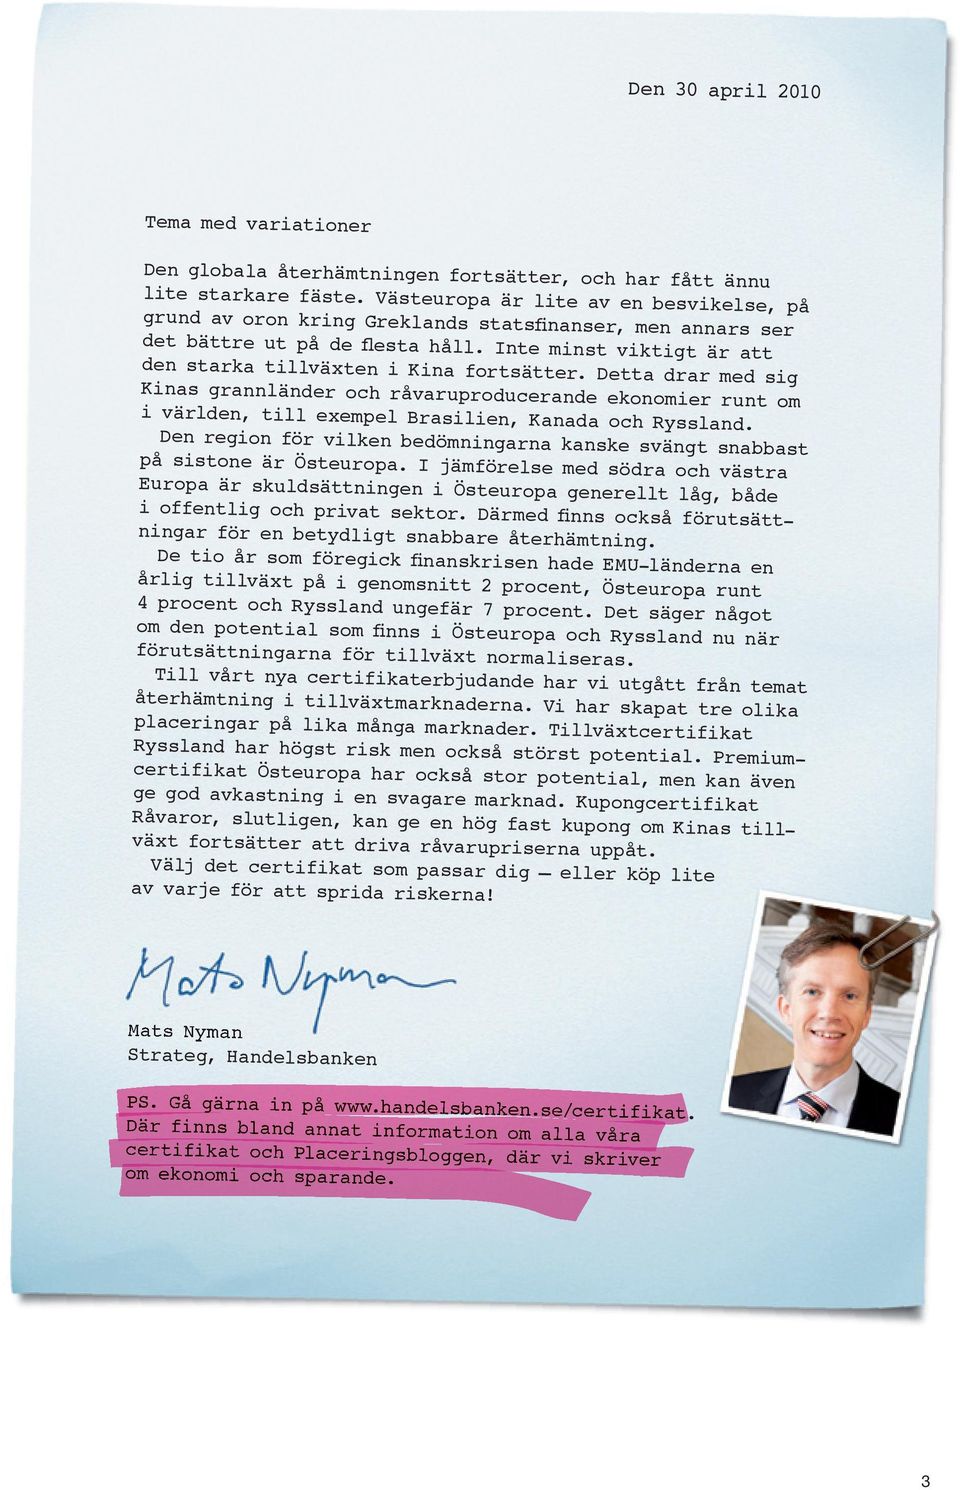 Den 30 april 2010
Tema med variationer
Den globala återhämtningen fortsätter, och har fått ännu
lite starkare fäste. Västeuropa är lite av en besvikelse, på
grund av oron kring Greklands statsfinanser, men annars ser
det bättre ut på de flesta håll. Inte minst viktigt är att
den starka tillväxten i Kina fortsätter. Detta drar med sig
Kinas grannländer och råvaruproducerande ekonomier runt om
i världen, till exempel Brasilien, Kanada och Ryssland.
Den region för vilken bedömningarna kanske svängt snabbast
på sistone är Östeuropa. I jämförelse med södra och västra
Europa är skuldsättningen i Östeuropa generellt låg, både
i offentlig och privat sektor. Därmed finns också förutsätt-
ningar för en betydligt snabbare återhämtning.
De tio år som föregick finanskrisen hade EMU-länderna en
årlig tillväxt på i genomsnitt 2 procent, Östeuropa runt
4 procent och Ryssland ungefär 7 procent. Det säger något
om den potential som finns i Östeuropa och Ryssland nu när
förutsättningarna för tillväxt normaliseras.
Till vårt nya certifikaterbjudande har vi utgått från temat
återhämtning i tillväxtmarknaderna. Vi har skapat tre olika
placeringar på lika många marknader. Tillväxtcertifikat
Ryssland har högst risk men också störst potential. Premium-
certifikat Östeuropa har också stor potential, men kan även
ge god avkastning i en svagare marknad. Kupongcertifikat
Råvaror, slutligen, kan ge en hög fast kupong om Kinas till-
växt fortsätter att driva råvarupriserna uppåt.
Välj det certifikat som passar dig – eller köp lite
av varje för att sprida riskerna!
Mats Nyman
Mats Nyman
Strateg, Handelsbanken
PS. Gå gärna in på www.handelsbanken.se/certifikat.
Där finns bland annat information om alla våra
certifikat och Placeringsbloggen, där vi skriver
om ekonomi och sparande.
3